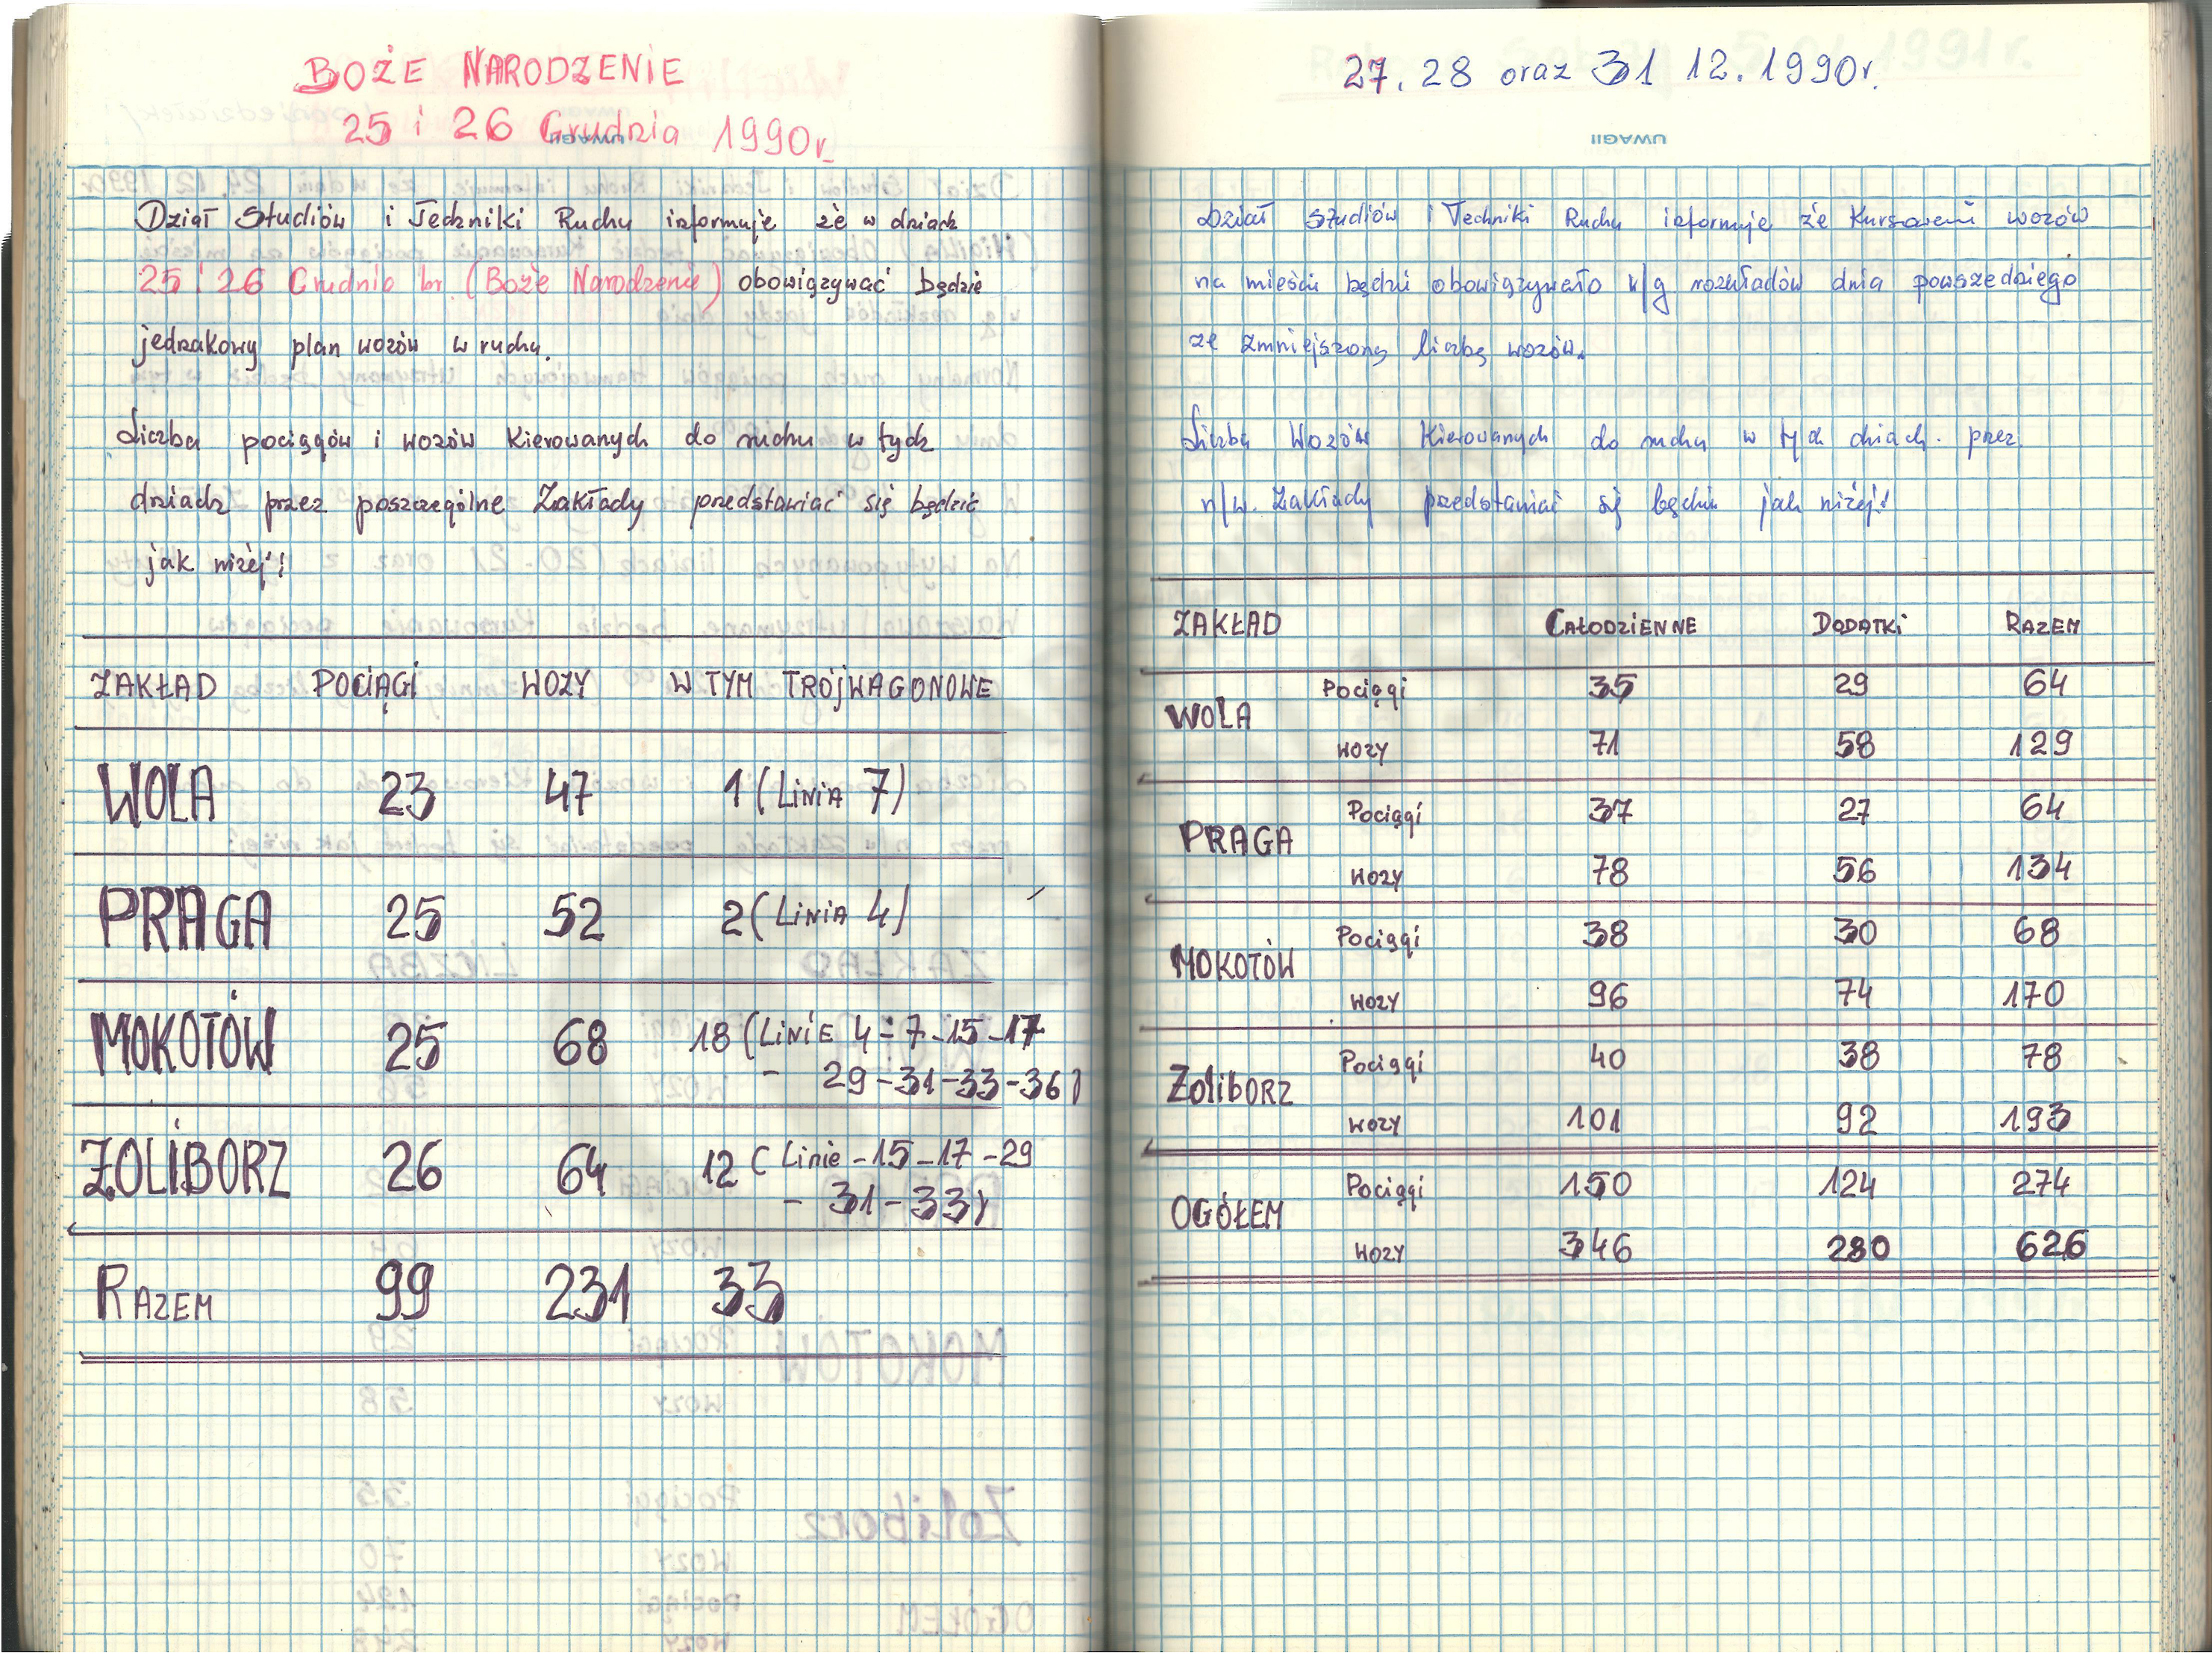 BOŻE NARODZENIE
25 i 26 Grudnia 1990r.
UWAGI
Dział Studiów i Techniki Ruchu informuje że w dniach
25 i 26 Grudnia br. (Boże Narodzenie) obowiązywać będzie
jednakowy plan wozów w ruchu.
Liczba pociągów i wozów kierowanych do ruchu w tych
dniach przez poszczególne Zakłady przedstawiać się będzie
jak niżej!
ZAKŁAD POCIĄGI WOZY W TYM TRÓJWAGONOWE
WOLA 23 47 1 (Linia 7)
PRAGA 25 52 2 (Linia 4)
MOKOTÓW 25 68 18 (Linie 4-7-15-17
- 29-31-33-36)
ŻOLIBORZ 26 64 12 (Linie -15-17-29
- 31-33)
RAZEM 99 231 33
27. 28 oraz 31 12.1990r.
UWAGI!
Dział Studiów i Techniki Ruchu informuje że Kursowanie wozów
na mieście będzie obowiązywało w/g rozkładów dnia powszedniego
ze zmniejszoną liczbą wozów.
Liczba Wozów Kierowanych do ruchu w tych dniach. przez
n/w. Zakłady przedstawiać się będzie jak niżej!
ZAKŁAD CAŁODZIENNE DODATKI RAZEM
WOLA Pociągi 35 29 64
WOZY 71 58 129
PRAGA Pociągi 37 27 64
WOZY 78 56 134
MOKOTÓW Pociągi 38 30 68
WOZY 96 74 170
Żoliborz Pociągi 40 38 78
WOZY 101 92 193
OGÓŁEM Pociągi 150 124 274
WOZY 346 280 626